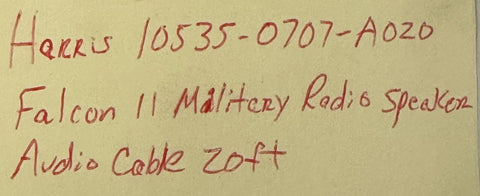 Harris 10535-0707-A020
Falcon 11 Military Radio Speaker
Audio Cable 20ft